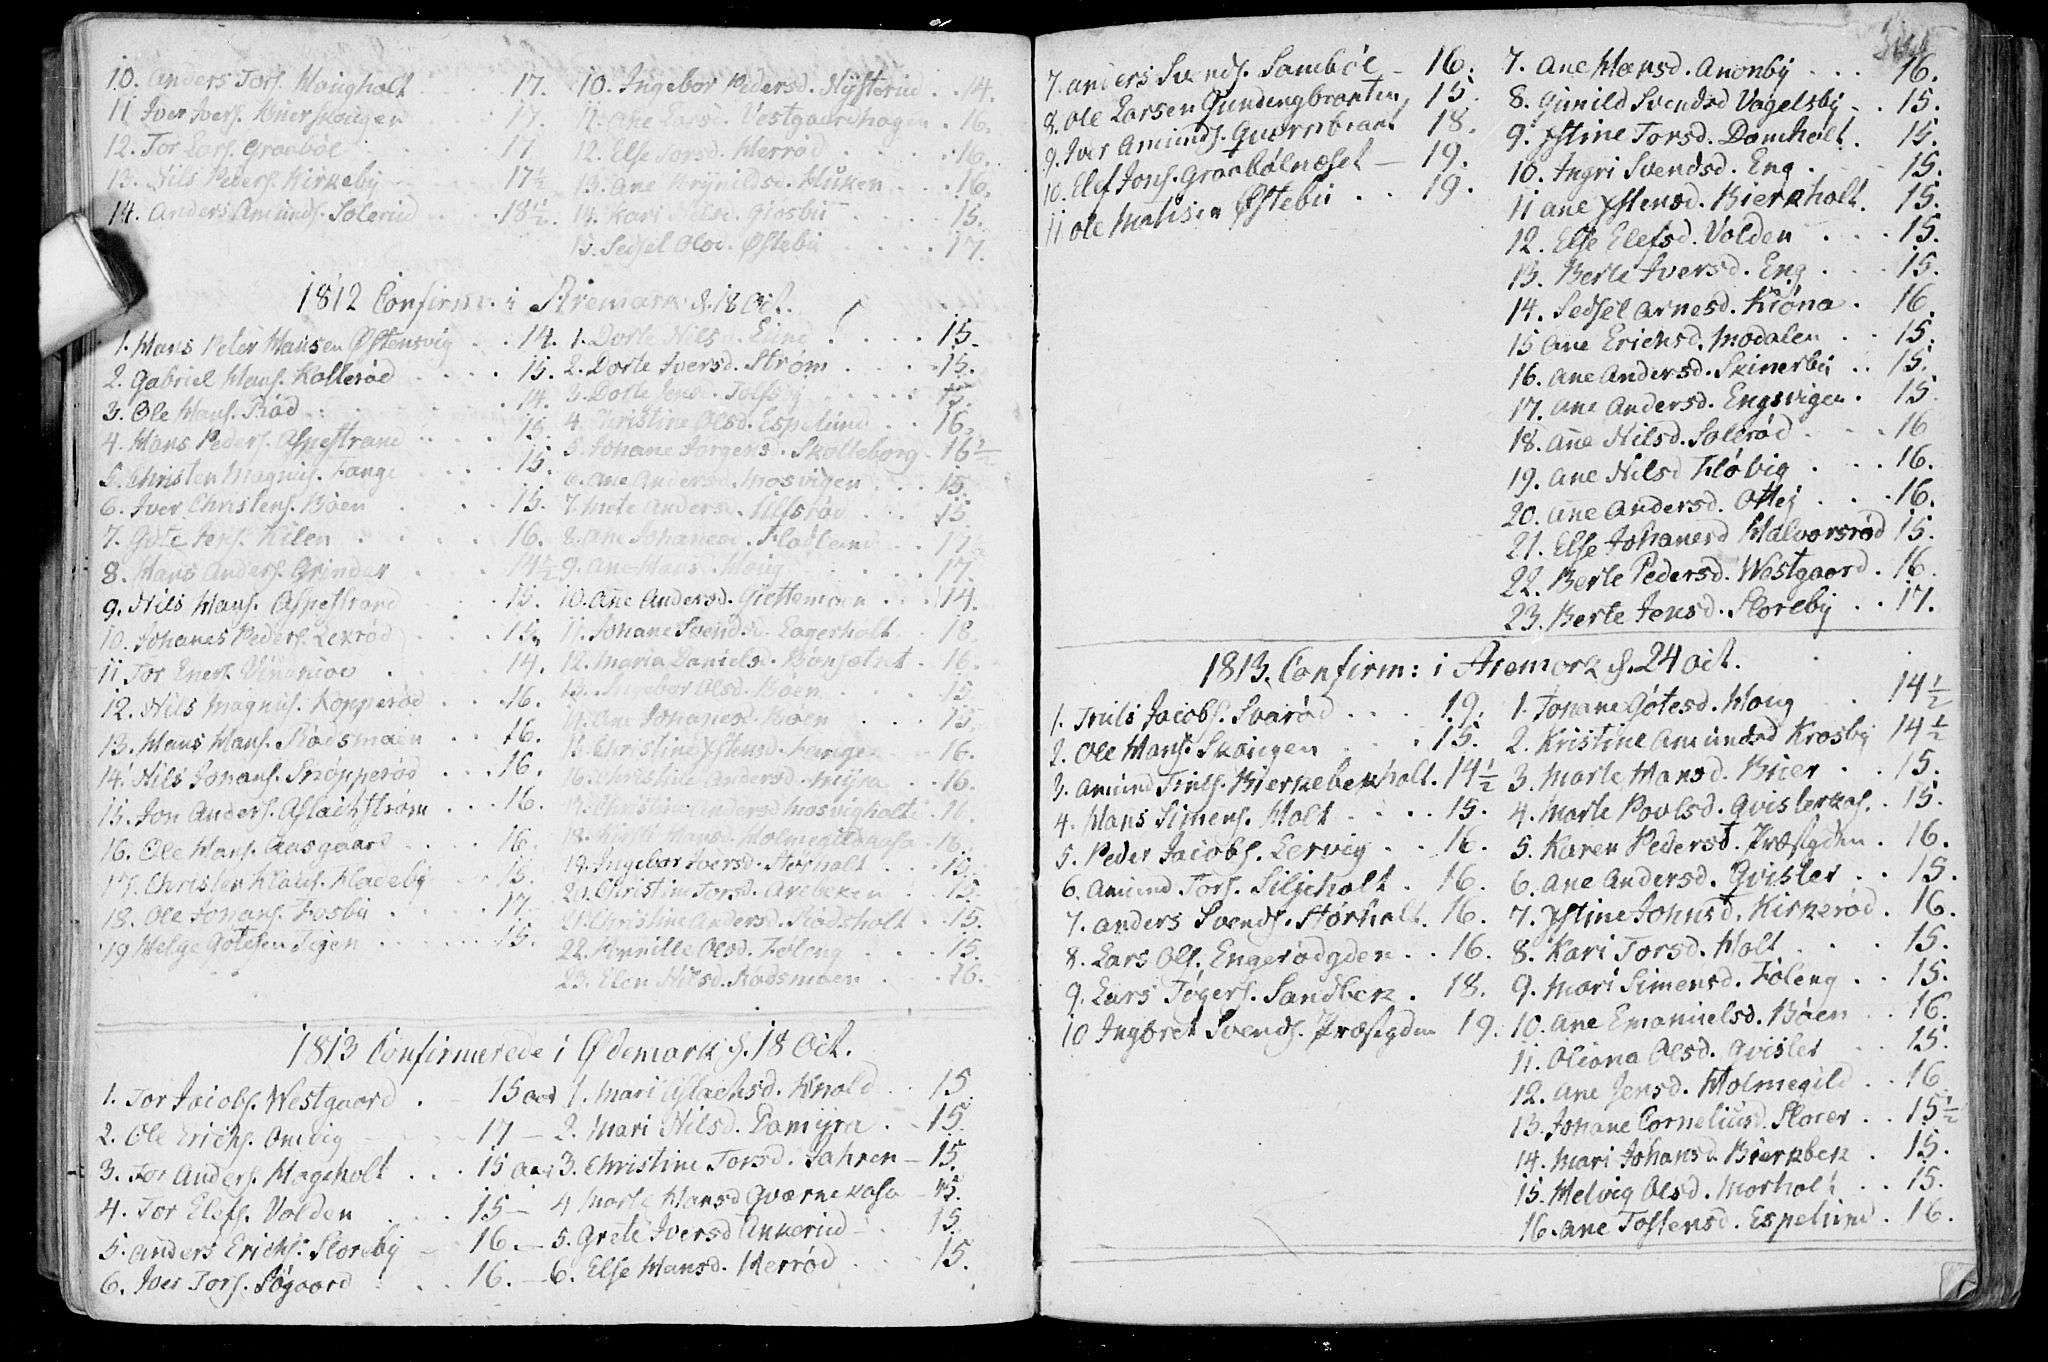 10. Anders Tors. Hougholt . . . 17.
11 Iver Ivers. Kuerskougen . . 17.
12. Tor Lars. Graabøl . . . 17
13. Nils Peders. Kirkeby . . 17½
14. Anders Amunds. Solerud . . . 18½.
10. Ingebor Pedersd. Nysterud . . 14.
11. Ane Larsd. Vestgaardhagen . 16.
12. Else Torsd. Herrød . . . . 16.
13. Ane Brynildsd. Huken . . . 16.
14. Kari Nilsd. Giosbu . . . 15.
15. Sedsel Olsd. Østebu . . . . 17.
1812 Confirm: i Aremark d. 18 Oct.
1. Hans Peter Hansen Østensvig . . 14.
2. Gabriel Hans. Kollerød . . . . 15.
3. Ole Hans. Rød . . . . 14.
4. Hans Peders. Aspestrand . . . 15.
5. Christen Magnus. Lange . . . 15.
6. Iver Christens. Bøen . . . 15.
7. Gøte Jens. Kilen . . . . 16.
8. Hans Anders. Grinder . . . 14½
9. Nils Hans. Aspestrand . . . 15.
10. Johanes Peders. Lexrød . . . 15.
11 Tor Eners. . . . 14.
12. Nils Magnus. Kopperød . . . 16.
13. Hans Hans. Rødsmoen . . 16.
14. Nils Johans. Skøpperød . . . 16.
15. Jon Anders. Aslachstrøm . . . 16.
16. Ole Hans. Aasgaard . . . 16.
17. Christen Klaus. Kladeby . . 15.
18. Ole Johans. Fosbu . . . . 17.
19 Helge Gøtesen Tigen . . . . 15.
1. Dorte Nilsd. Lund . . . . 15.
2. Dorte Iversd. Strøm . . . 15.
3. Dorte Jensd. Tolfsby . . . 15.
4. Christine Olsd. Espelund . . 16.
5. Johane Jørgensd. Skolleborg . 16½
6. Ane Andersd. Mosvigen . . . 15.
7. Mete Andersd. Ulfsrød . . . 15.
8. Ane Johanesd. Fladlund . . 17½
9. Ane Hansd. Houg . . . . 17.
10. Ane Andersd. Giettemoen . . . 14.
11. Johane Svendsd. Lagerholt . 18.
12. Maria Danielsd. Bønsætret . 16.
13. Ingebor Olsd. Bøen . . . 15.
14. Ane Johanesd. Bøen . . . 15.
15. Christine Ystensd. Lange . . 16.
16. Christine Andersd. Myra . . 16.
17. Christine Andersd Mosvigholte . 16.
18. Kirsti Hansd. Holmegildaasa . 16.
19. Ingebor Iversd. Storholt . . . 15.
20. Christine Torsd. Arebeken . . 15.
21. Christine Andersd. Rødsholt . 15.
22. Pernille Olsd. Foleng . . . 15.
23. Elen Nilsd. Rødsmoen . . 16.
1813 Confirmerede i Ødemark d. 18 Oct.
1. Tor Jacobs. Westgaard . . 15 aar
2. Ole Erichs. Onstig . . . 17 –
3. Tor Anders. Hageholt . . . 15 aar
4. Tor Elefs. Volden . . . 15 –
5. Anders Erichs. Storeby . . 16. –
6. Iver Tors. Søgaard . . . 16. –
1. Mari Aslachsd. Knold . . 15.
2. Mari Nilsd. Damyra . . 15.
3. Christine Torsd. Jahren – 15.
4 Marte Hansd Qværnekasa – 15.
5. Grete Iversd Ankerud – . 15.
6. Else Hansd. Herrød . . . 15.
7. Anders Svends. Sambøl – 16.
8. Ole Larsen Gundengbraaten, 15
9. Iver Amunds. Quernbraat 18.
10. Elef Jons. Graabølnæset – 19.
11 Ole Matisen Østebu . . 19.
7. Ane Hansd. Anonby . . . 16.
8. Gunild Svendsd Vagelsby . . 15.
9. Ystine Torsd. Damholt . 15.
10. Ingri Svendsd. Eng . . . 15.
11 Ane Ystensd. Bierkholt. 15.
12. Else Elefsd. Volden . . . 15.
13. Berte Iversd. Eng . . . 15.
14. Sedsel Arnesd. Kiøna . 16.
15 Ane Erichsd. Modalen . . 15.
16. Ane Andersd. Skinerbu . . 15.
17. Ane Andersd. Engsvigen . 15.
18. Ane Nilsd. Solerød . . . 16
19. Ane Nilsd Fløbig . . . 16.
20. Ane Andersd. Ottej . . . 16.
21. Else Johanesd Halvorsrød 15.
22. Berte Pedersd. Westgaard . 16.
23. Berte Jensd. Storeby . . 17.
1813. Confirm: i Aremark d. 24 oct.
1. Truls Jacobs. Svarød . . . 19.
2. Ole Hans. Skougen . . . 15.
3. Amund Truls. Bierkebekholt. 14½
4. Hans Simens. Holt . . . . 15.
5. Peder Jacobs. Lervig . . 16.
6. Amund Tors. Siljeholt . 16.
7. Anders Svends. Størholt. 16.
8. Lars Ols. Engerødgden . . 16.
9. Lars Tøgers. Sandbek . 18.
10 Ingbret Svends. Præstgden 19.
1. Johane Gøtesd. Houg . . 14½
2. Kristine Amundsd Krosby 14½
3. Marte Hansd. Buer . . 15.
4. Marte Povlsd. Qvislerkas. . 15.
5. Karen Pedersd. Præstgden . 16.
6. Ane Andersd. Qvisler . . 15.
7. Ystine Johnsd. Kirkerød . 16.
8. Kari Torsd. Holt . . . 15.
9. Mari Simensd. Foleng . . 15.
10. Ane Emanuelsd. Bøen . . 16.
11. Oliana Olsd. Qvisler . . 15.
12. Ane Jensd. Holmegild . . 16.
13. Johane Corneliusd. Storer . . 15½
14. Mari Johansd. Bierkbek . 15.
15. Helvig Olsd. Morholt . . 15.
16. Ane Tostensd. Espelund . 16.